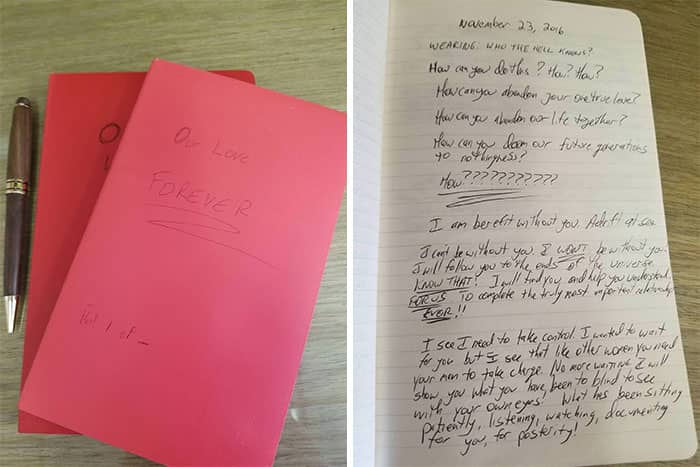 Our Love
FOREVER
Vol 1 of _
O
November 23, 2016
WEARING: WHO THE HELL KNOWS?
How can you do this? How? How?
How can you abandon your one true love?
How can you abandon our life together?
How can you doom our future generations
to nothingness?
How???????????
I am berefit without you. Adrift at sea.
I can't be without you. I WON'T be without you.
I will follow you to the ends of the universe.
KNOW THAT! I will find you and help you understand.
FOR US to complete the truly most important relationship
EVER!!
I see I need to take control. I wanted to wait
for you but I see that like other women you need
your man to take charge. No more waiting. I will
show you what you have been to blind to see
with your own eyes! What has been sitting
patiently, listening, watching, documenting
for you, for posterity!